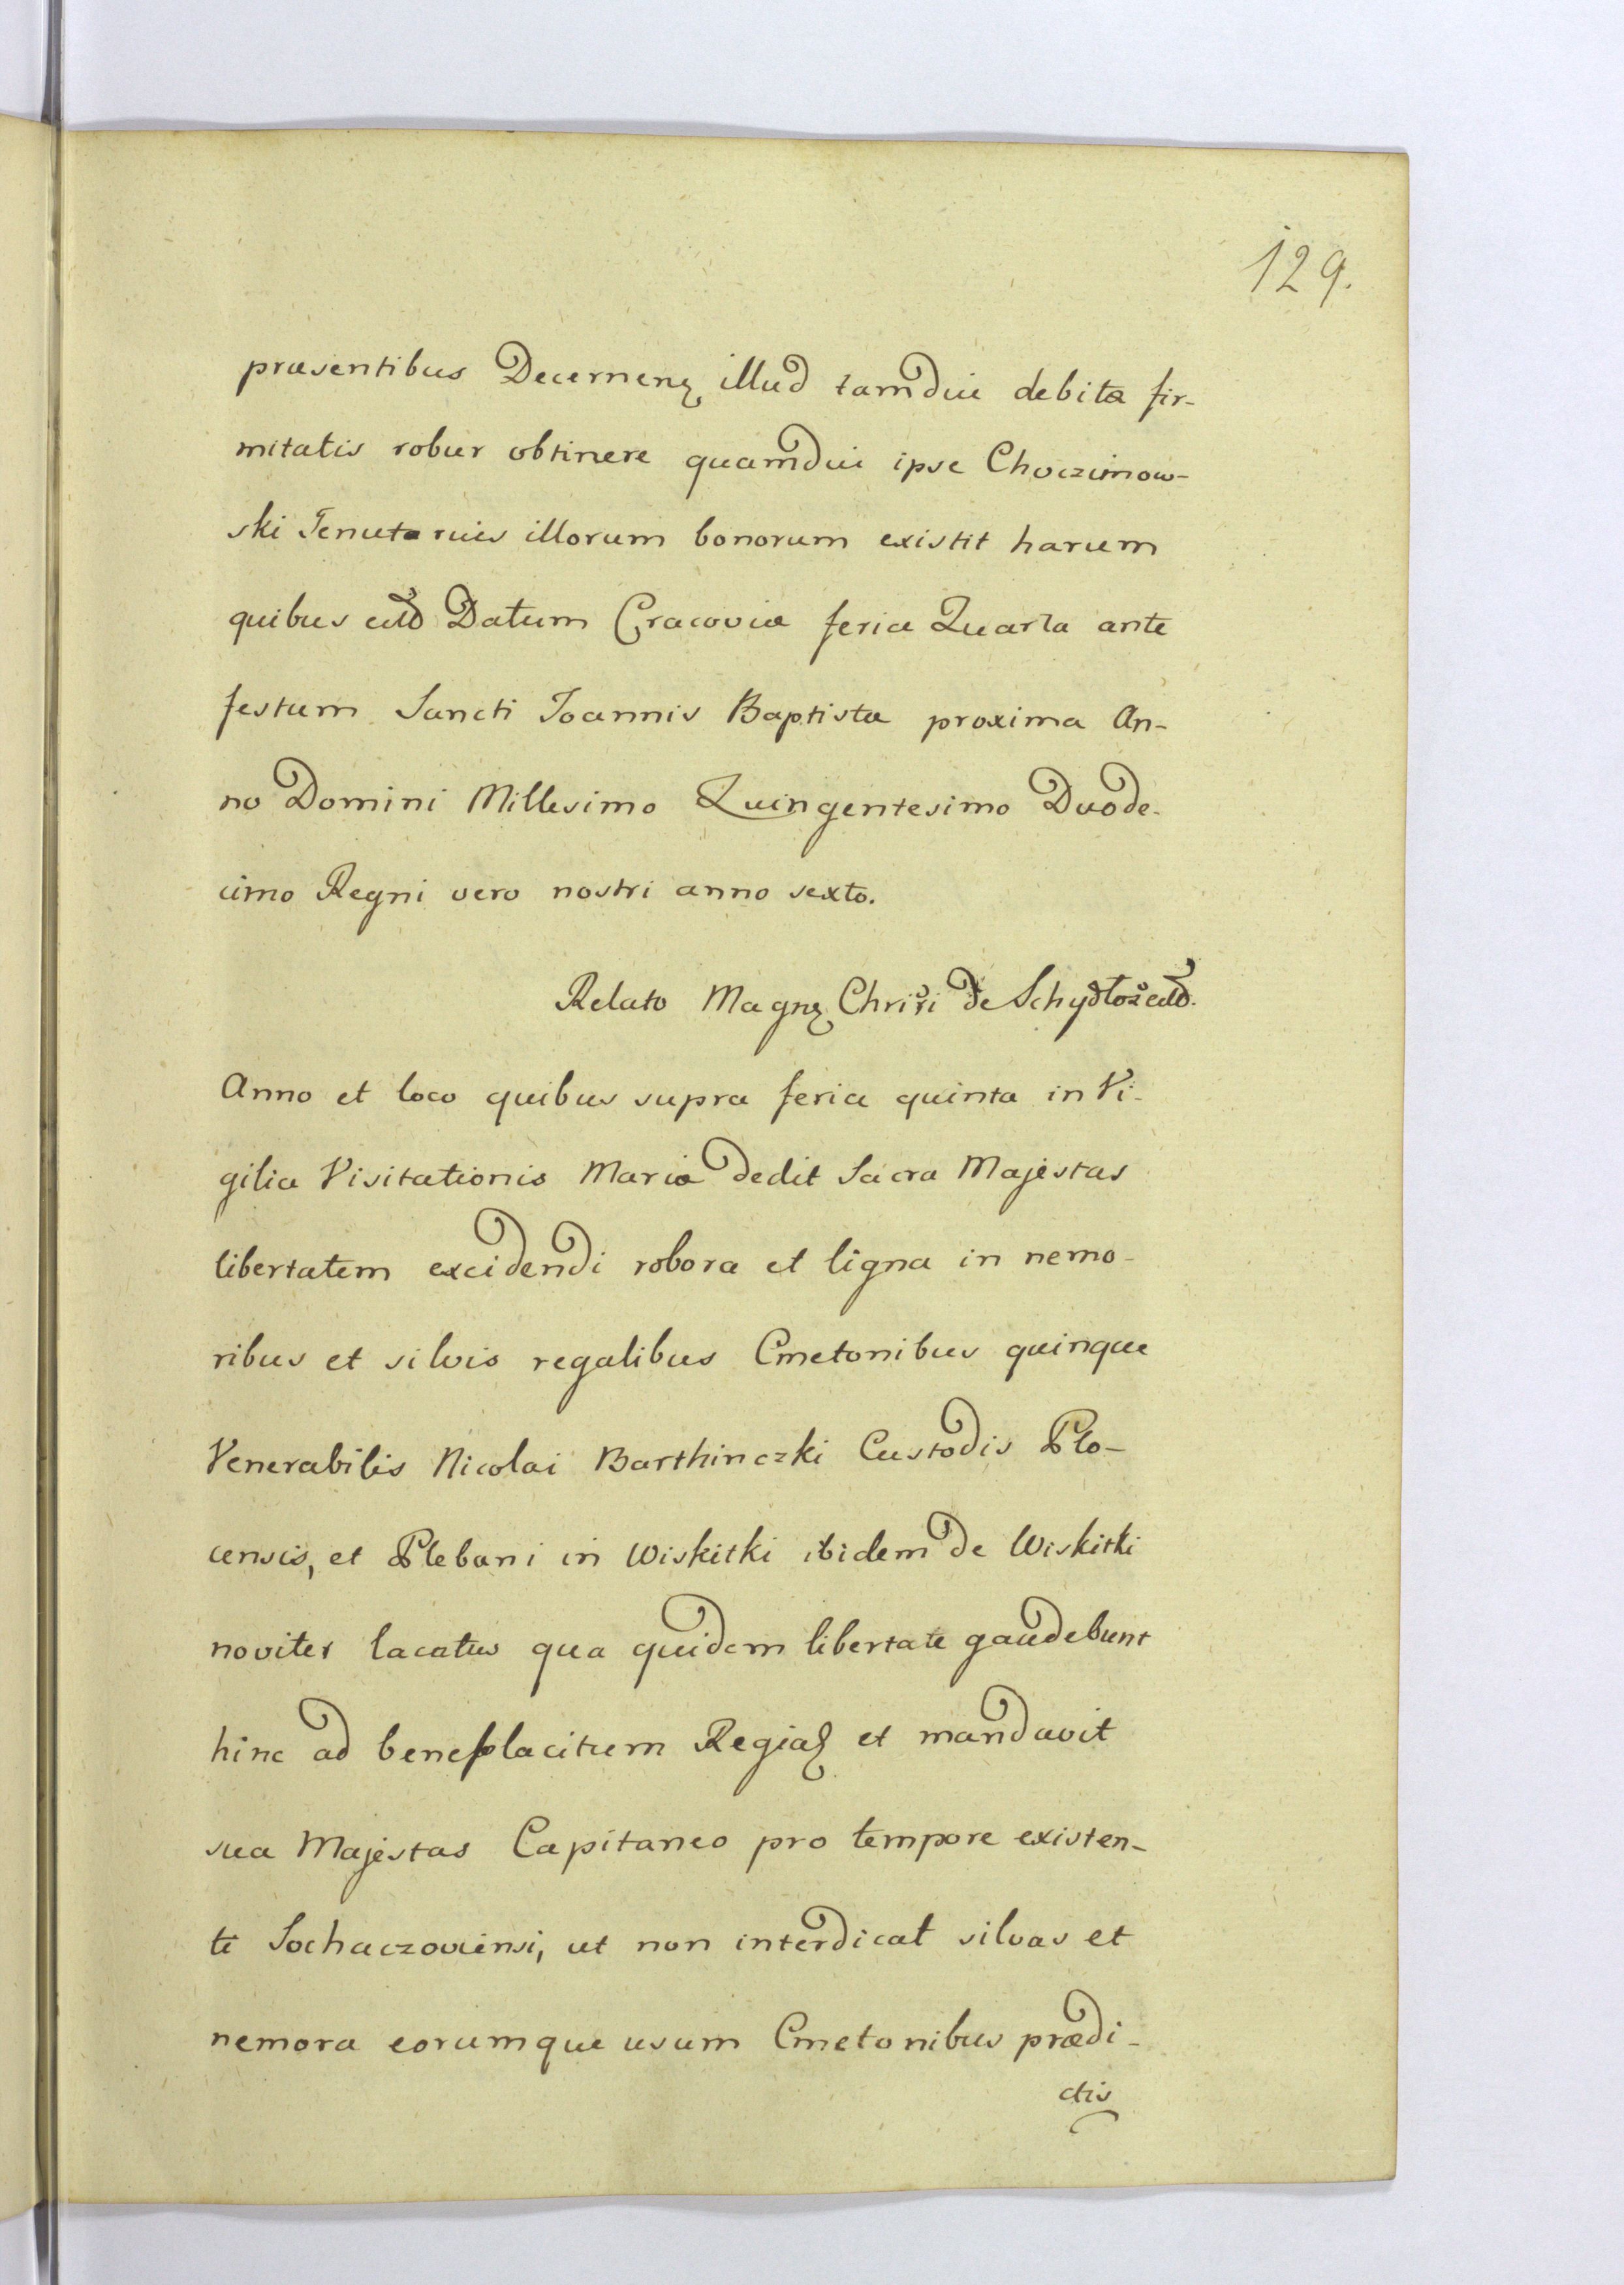 129.
præsentibus Decernenȝ illud tamdiu debita fir-
mitatis robur obtinere quamdiu ipse Choczimow-
ski Tenutarius illorum bonorum existit harum
quibus Datum Cracoviæ feria Quarta ante
festum Sancti Joannis Baptistæ proxima An-
no Domini Millesimo Quingentesimo Duode-
cimo Regni vero nostri anno sexto.
Relato Magnȝ Chrisi de
Anno et loco quibus supra feria quinta in Vi-
gilia Visitationis Mariæ dedit Sacra Majestas
libertatem excidendi robora et ligna in nemo-
ribus et silvis regalibus Cmetonibus quinque
Venerabilis Nicolai Barthinczki Custodis Plo-
censis, et Plebani in Wiskitki ibidem de Wiskitki
noviter lacatus qua quidem libertate gaudebunt
hinc ad beneplacitum Regiaȝ et mandavit
sua Majestas Capitaneo pro tempore existen-
te Sochaczoviensi, ut non interdicat silvas et
nemora eorumque usum Cmetonibus prædi-
ctis